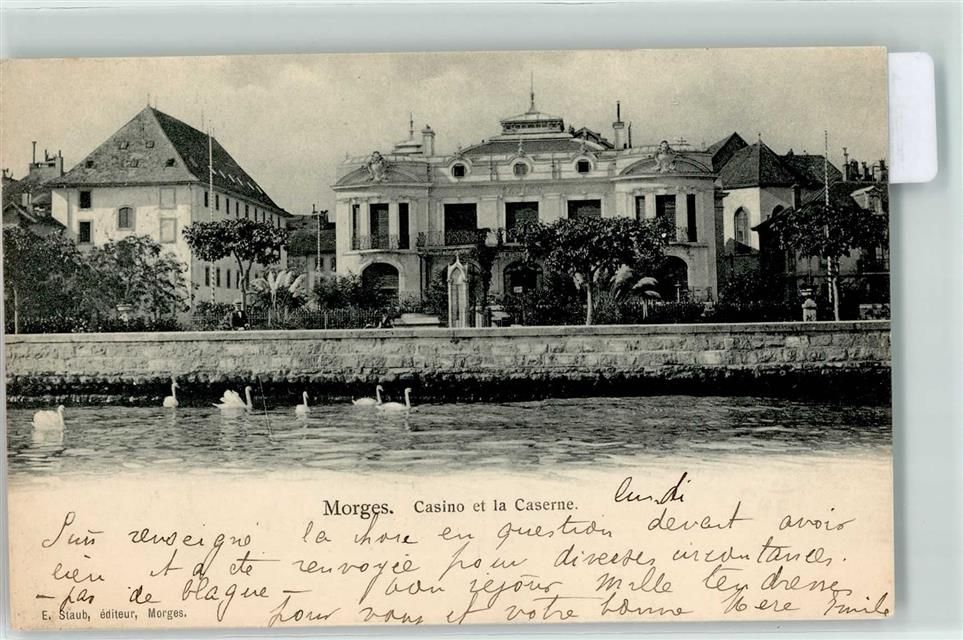 CASINO
Morges. Casino et la Caserne.
lundi
Suis renseigné la chose en question devant avoir
lieu et a été renvoyée pour diverses circontances.
- pas de blague - bon séjour Mille tendresses
pour vous et votre bonne Mère Emile
E. Staub, éditeur, Morges.